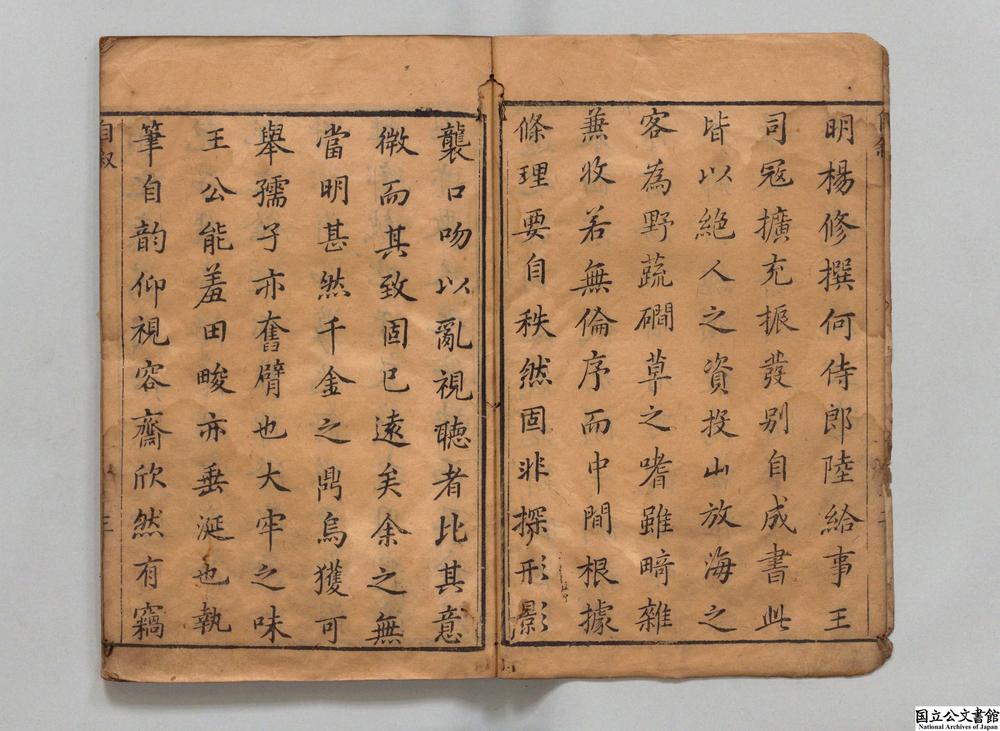 明楊修撰何侍郎陸給事王
司冦擴充振發別自成書此
皆以絕人之資投山放海之
客為野蔬磵草之嗜雖畸雜
兼收若無倫序而中間根據
條理要自秩然固非探形影
襲口吻以亂視聽者比其意
微而其致固已遠矣余之無
當明甚然千金之鼎烏獲可
舉孺子亦奮臂也大牢之味
王公能羞田畯亦垂涎也執
筆自韵仰視容齋欣然有竊
自叙
三
国立公文書館
National Archives of Japan